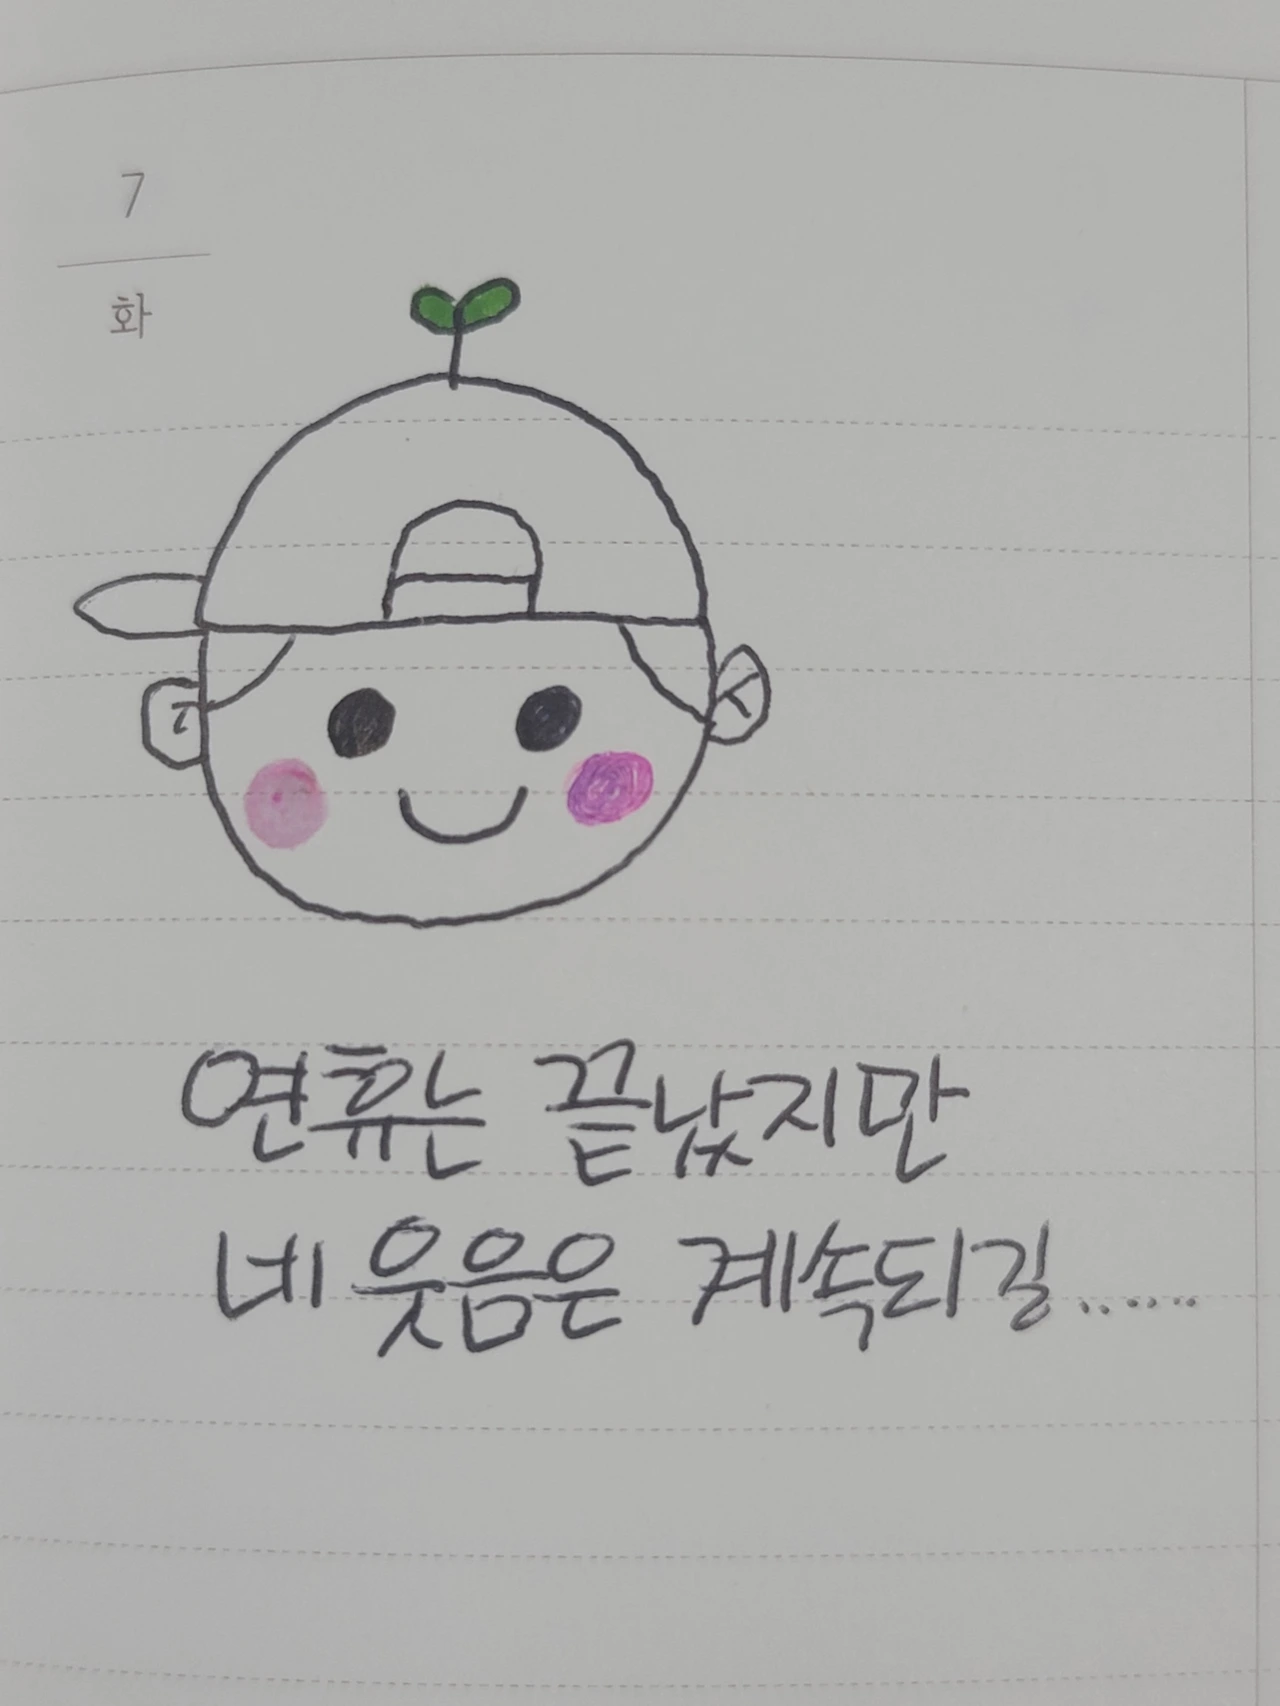 7
화
연휴는 끝났지만
네 웃음은 계속되길......